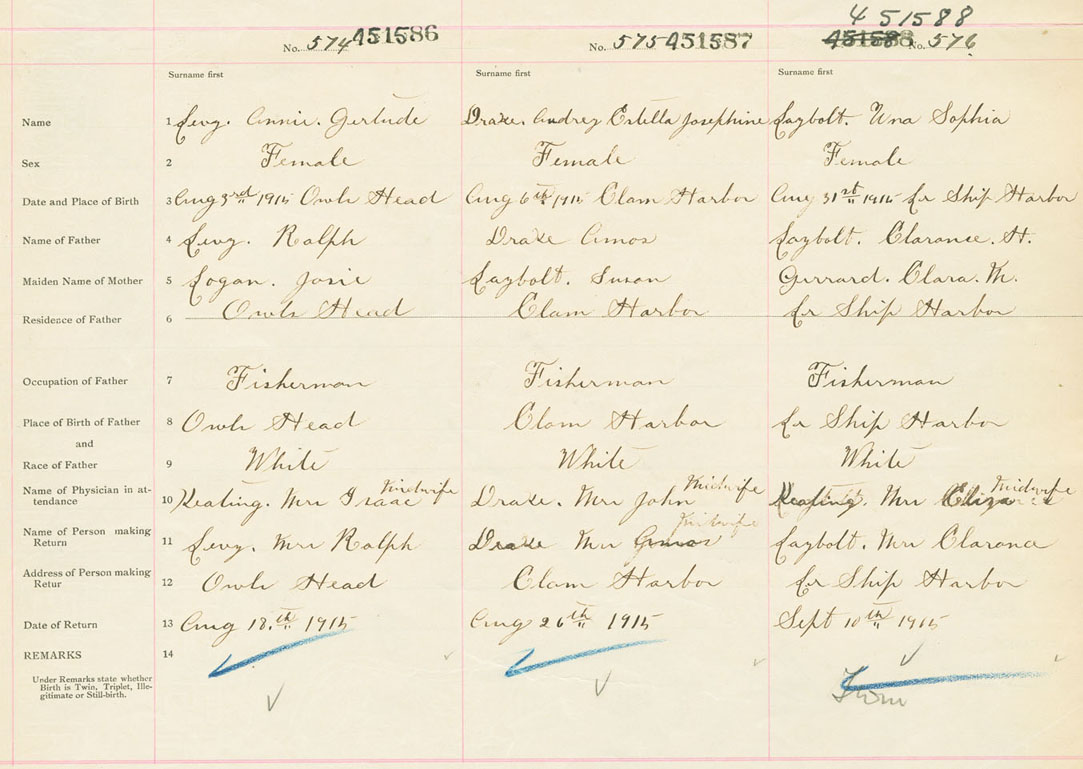 451588
No. 574 451586 No. 575 451587 451588 No. 576
Surname first Surname first Surname first
Name 1 Levy. Annie. Gertude Drake. Audrey Estella Josephine Laybolt. Una Sophia
Sex 2 Female Female Female
Date and Place of Birth 3 Aug 3rd 1915 Owls Head Aug 6th 1915 Clam Harbor Aug 31st 1915 Lr Ship Harbor
Name of Father 4 Levy. Ralph Drake Amos Laybolt. Clarance. H.
Maiden Name of Mother 5 Logan. Josie Laybolt. Susan Gerrard. Clara. M.
Residence of Father 6 Owls Head Clam Harbor Lr Ship Harbor
Occupation of Father 7 Fisherman Fisherman Fisherman
Place of Birth of Father 8 Owls Head Clam Harbor Lr Ship Harbor
and
Race of Father 9 White White White
Name of Physician in at- Midwife Midwife Midwife
tendance 10 Keating. Mrs Isaac Drake. Mrs John Keating. Mrs
Name of Person making Midwife
Return 11 Levy. Mrs Ralph Drake Mrs Amos Laybolt. Mrs Clarance
Address of Person making
Retur 12 Owls Head Clam Harbor Lr Ship Harbor
Date of Return 13 Aug 18.th 1915 Aug 26th 1915 Sept 10th 1915
REMARKS 14
Under Remarks state whether
Birth is Twin, Triplet, Ille-
gitimate or Still-birth.